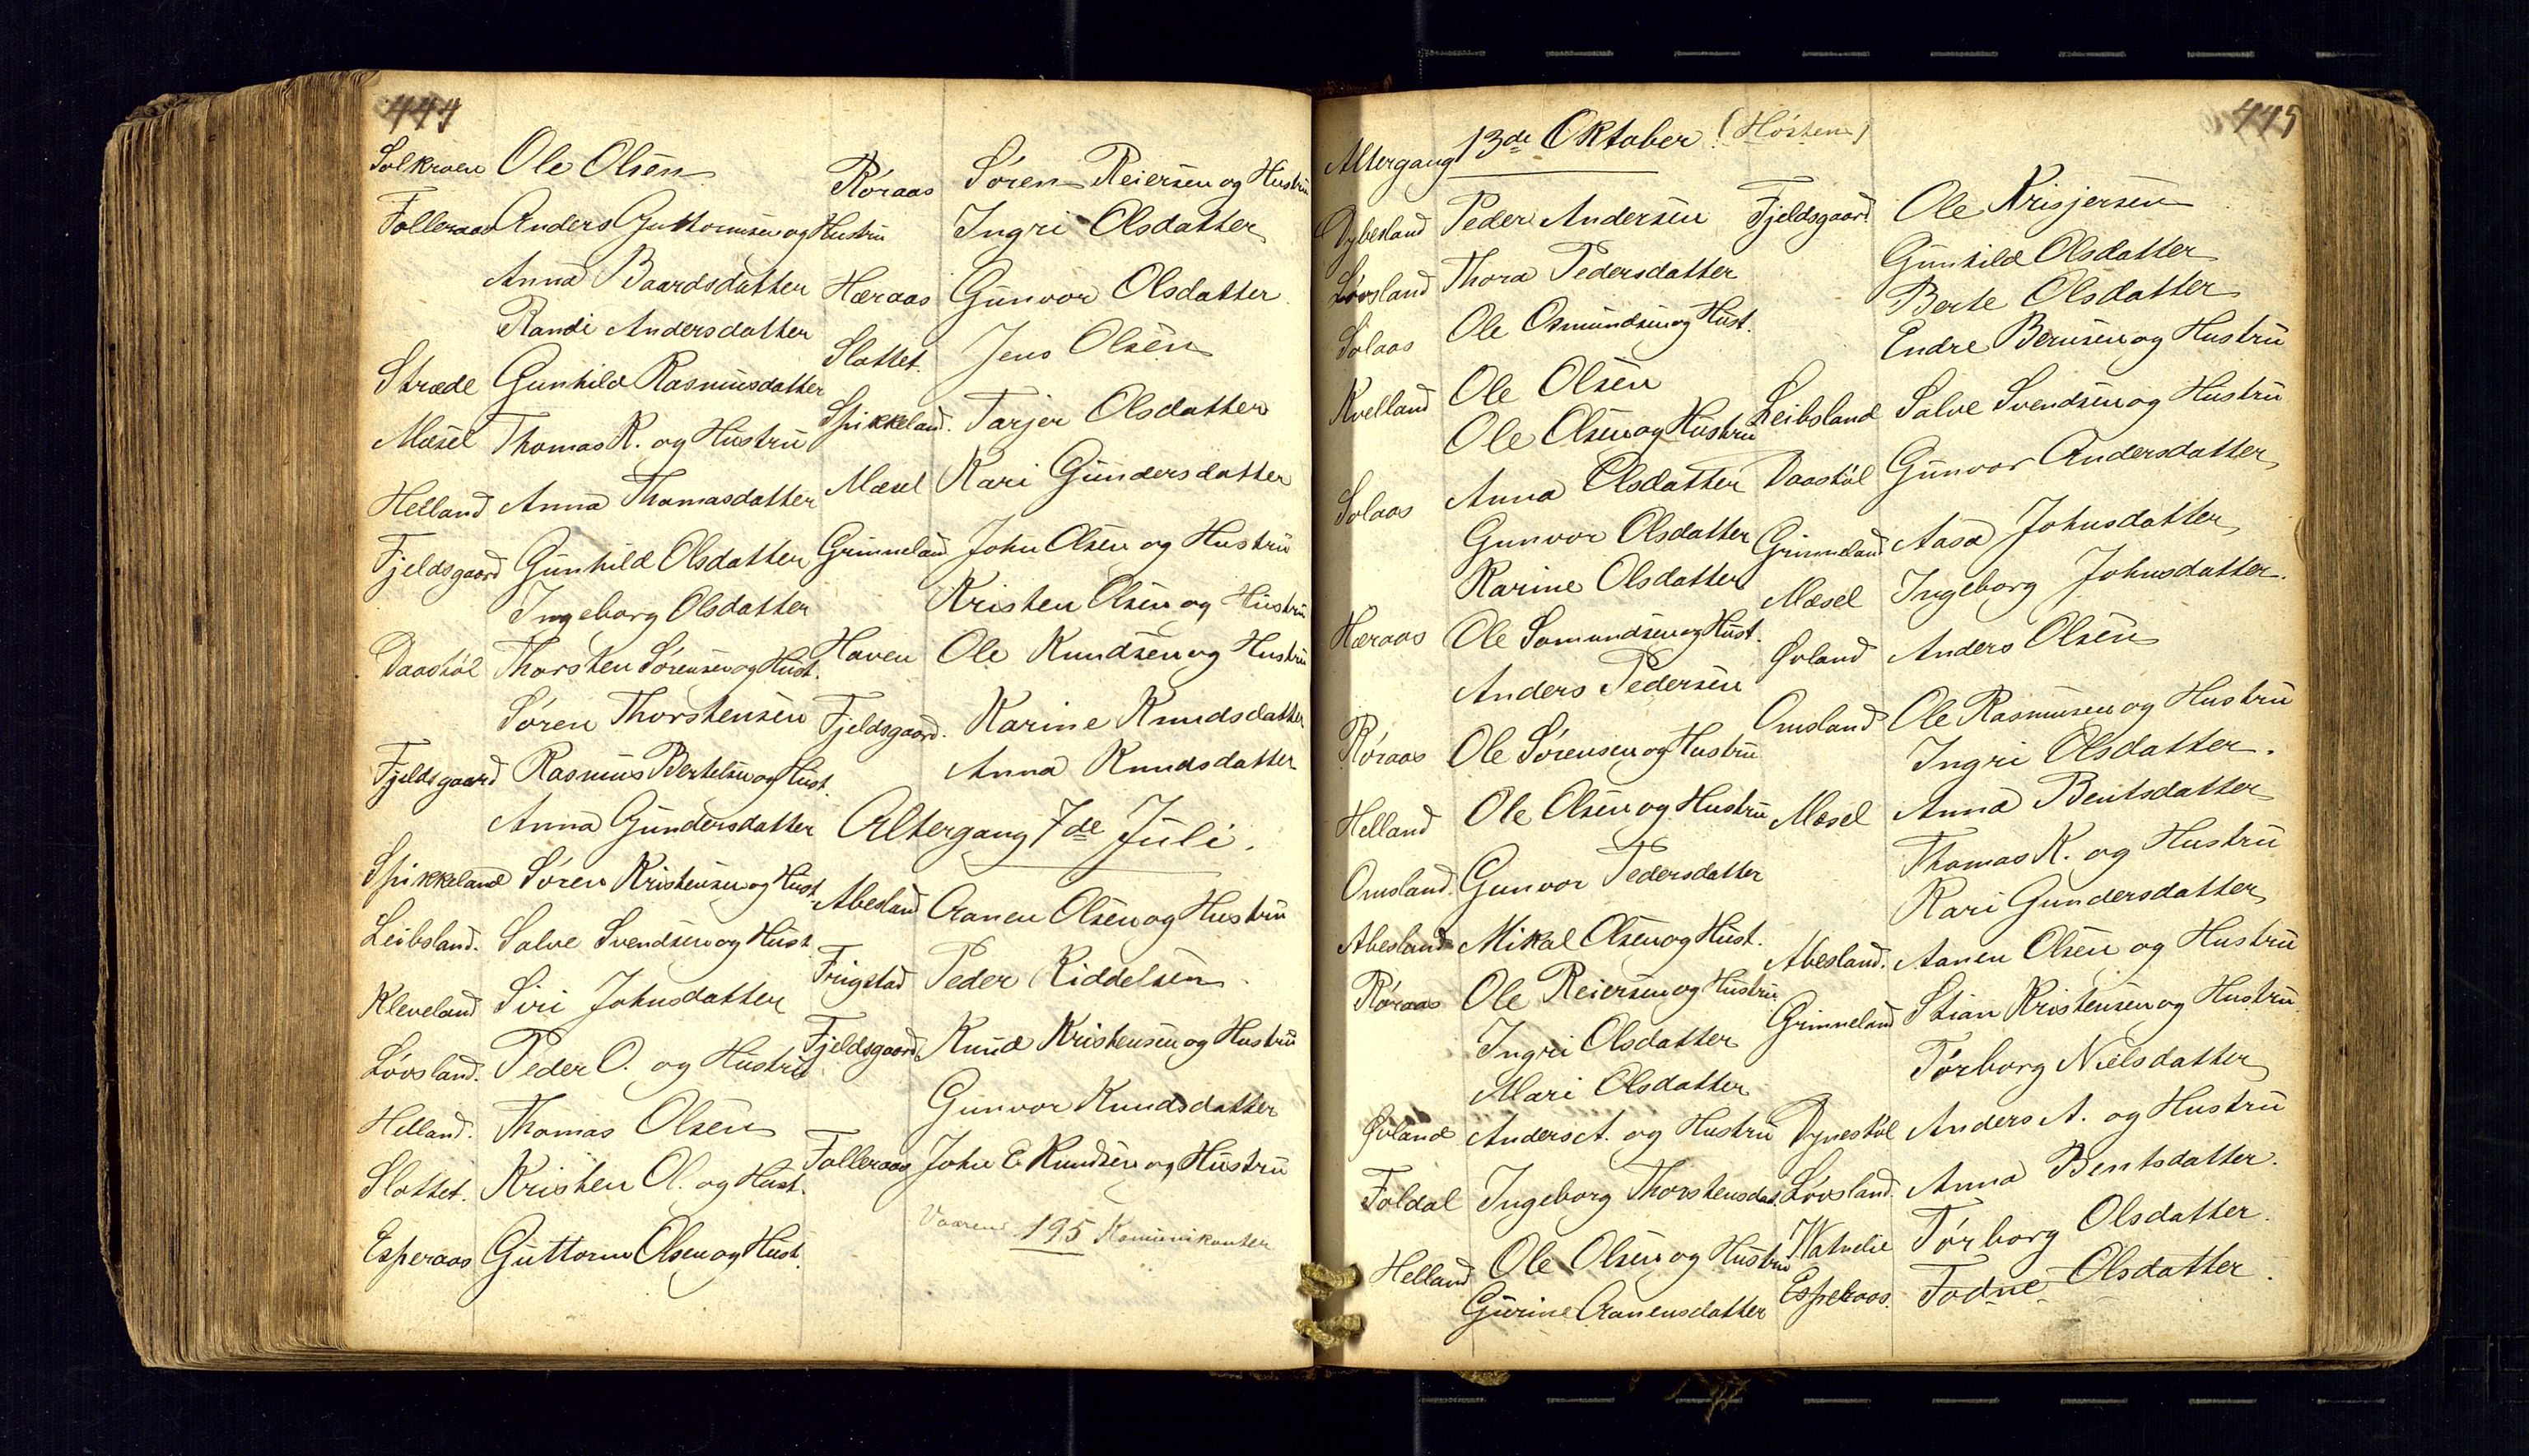 444
Solkroen Ole Olsen
Folleraas Anders Guttormsen og Hustru
Anna Baardsdatter
Randi Andersdatter
Stræde Gunhild Rasmusdatter
Mæsel Thomas K. og Hustru
Helland Anna Thomasdatter
Fjeldsgaard Gunhild Olsdatter
Ingeborg Olsdatter
Daastøl Thorsten Sørensen og Hust.
Søren Thorstensen
Fjeldsgaard Rasmus Bertelsen og Hust.
Anna Gundersdatter
Spikkeland Søren Kristensen og Hust.
Leibsland. Salve Svendsen og Hust.
Kleveland Siri Johnsdatter
Løvsland. Peder O. og Hustru
Helland. Thomas Olsen
Slottet. Kristen Ol. og Hust.
Esperaas Guttorm Olsen og Hust.
Røraas Søren Reiersen og Hustru
Ingri Olsdatter
Høraas Gunvor Olsdatter
Slottet. Jens Olsen
Spikkeland. Tarjer Olsdatter
Mæsel Kari Gundersdatter
Grimneland John Olsen og Hustru
Kristen Olsen og Hustru
Haven Ole Knudsen og Hustru
Fjeldsgaard. Karine Knudsdatter
Anna Knudsdatter
Altergang 7de Juli.
Abesland Aanen Olsen og Hustru
Frigstad Peder Kiddelsen
Fjeldsgaard Knud Kristensen og Hustru
Gunvor Knudsdatter
Folleraas John E Knudsen og Hustru
Vaaren 195 Komunikanter
445
Altergang 13de Oktober (Høsten)
Dybesland Peder Andersen
Løvsland Thora Pedersdatter
Solaas Ole Osmundsen og Hust.
Kvelland Ole Olsen
Ole Olsen og Hustru
Solaas Anna Olsdatter
Gunvor Olsdatter
Karine Olsdatter
Høraas Ole Somundsen og Hust.
Anders Pedersen
Røraas Ole Sørensen og Hustru
Helland Ole Olsen og Hustru
Omsland. Gunvor Pedersdatter
Abesland Mikal Olsen og Hust.
Røraas Ole Reiersen og Hustru
Ingri Olsdatter
Mari Olsdatter
Øvland Anders A. og Hustru
Foldal Ingeborg Thorstensdat.
Helland Ole Olsen og Hustru
Gurine Aanensdatter
Fjeldsgaard Ole Krisjersen
Gunhild Olsdatter
Berte Olsdatter
Endre Bernsen og Hustru
Leibsland Salve Svendsen og Hustru
Daastøl Gunvor Andersdatter
Grimneland Aasa Johnsdatter
Mæsel Ingeborg Johnsdatter.
Øvland Anders Olsen
Omsland Ole Rasmusen og Hustru
Ingri Olsdatter.
Mæsel Anna Bentsdatter
Thomas K. og Hustru
Kari Gundersdatter
Abesland. Aanen Olsen og Hustru
Grimneland Stian Kristensen og Hustru
Tørborg Nielsdatter
Dynestøl Anders A. og Hustru
Løvsland. Anna Bentsdatter.
Watnelie Tørborg Olsdatter.
Esperaas. Todne Olsdatter.